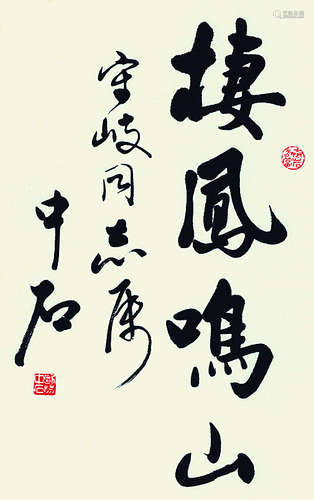 棲鳳鳴山
守岐同志属
中石